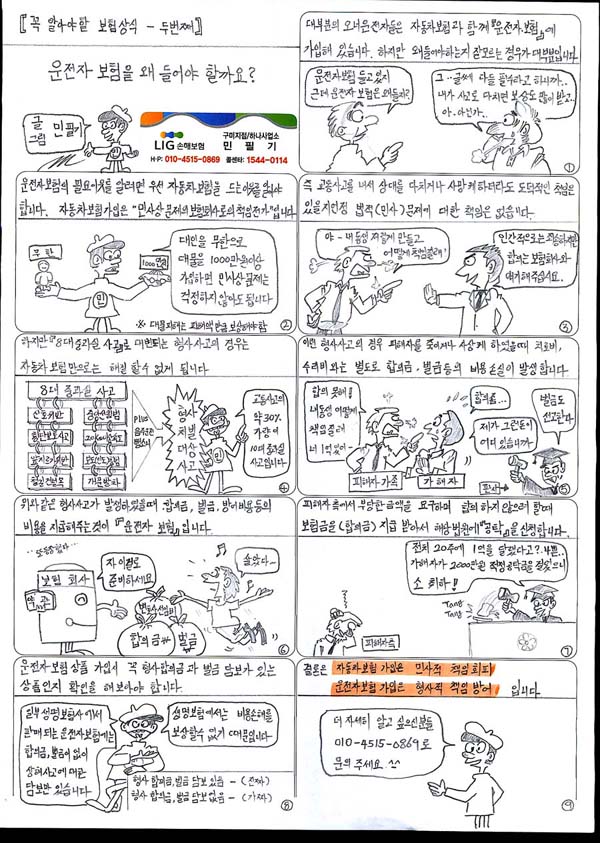 『꼭 알아야할 보험상식 - 두번째』
운전자 보험을 왜 들어야 할까요?
글
그림
민필기
LIG 손해보험
구미지점/하나사업소
민 필 기
H·P: 010-4515-0869 콜센타: 1544-0114
대부분의 오너운전자들은 자동차보험과 함께 『운전자보험』에
가입해 있습니다. 하지만 왜들어야하는지 잘모르는 경우가 대부분입니다
운전자보험 들고있지
근데 운전자 보험은 왜들지?
그..글쎄 다들 필수라고 하니까..
내가 사고로 다치면 보상도 많이 받고..
아..아닌가..
①
운전자보험의 필요이유를 알려면 우선 자동차보험을 드는이유를 알아야
합니다. 자동차보험가입은 "민사상 문제의 보험회사로의 책임전가"입니다
무한
1000만원
민
대인을 무한으로
대물을 1000만원이상
가입하면 민사상 문제는
걱정하지 않아도 됩니다
※ 대물피해는 피해액만큼 보상해야함
②
즉 교통사고를 내서 상대를 다치거나 사망케하더라도 도덕적인 책임은
있을지언정 법적(민사)문제에 대한 책임은 없습니다.
야~ 내동생 저렇게 만들고
어떻게 책임질래?
인간적으로는 죄송하지만
합의는 보험회사와
얘기해주십시요.
③
하지만 『8대중과실 사고』로 대변되는 형사사고의 경우는
자동차 보험만으로는 해결 할수 없게 됩니다
8대 중과실 사고
신호위반
중앙선침범
횡단보도사고
개문발차
PLUS
음주운전
뺑소니
형사
처벌
대상
사고
교통사고의
약 30%
가량이
10대 중과실
사고입니다
④
이런 형사사고의 경우 피해자를 죽이거나 사상케 하였을때 치료비,
수리비 와는 별도로 합의금, 벌금등의 비용 손실이 발생합니다.
합의 못해!
내동생 어떻게
책임질래
너 1억 없어~
합의좀...
제가 그런돈이
어디 있습니까..
벌금도
선고한다
피해자 가족
가해자
판사
⑤
위와같은 형사사고가 발생하였을때 합의금, 벌금, 방어비용등의
비용을 지급해주는것이 『운전자 보험』입니다.
보험 회사
약관
자 이걸로
준비하세요
변호사선임비
합의금
벌금
살았다~
⑥
피해자측에서 부당한 금액을 요구하며 합의 하지 않으려 할때
보험금을(합의금) 지급 받아서 해당 법원에 『공탁』을 신청합니다.
전치 20주에 1억을 달랬다고?..나쁜..
가해자가 2000만원 적정공탁금을 걸었으니
소 취하!
Tang
Tang
피해자측
⑦
운전자보험 상품 가입시 꼭 형사합의금과 벌금 담보가 있는
상품인지 확인을 해보아야 합니다.
일부 생명보험사에서
판매되는 운전자보험에는
합의금, 벌금이 없이
상해사고에 대한
담보만 있습니다
생명보험에서는 비용손해를
보상할수 없기 때문입니다
형사 합의금, 벌금 담보 있음 - (진짜)
형사 합의금, 벌금 담보 없음 - (가짜)
⑧
결론은 자동차보험 가입은 민사적 책임 회피
운전자보험 가입은 형사적 책임 방어 입니다
더 자세히 알고 싶으신분들
010-4515-0869로
문의 주세요 ^^
⑨